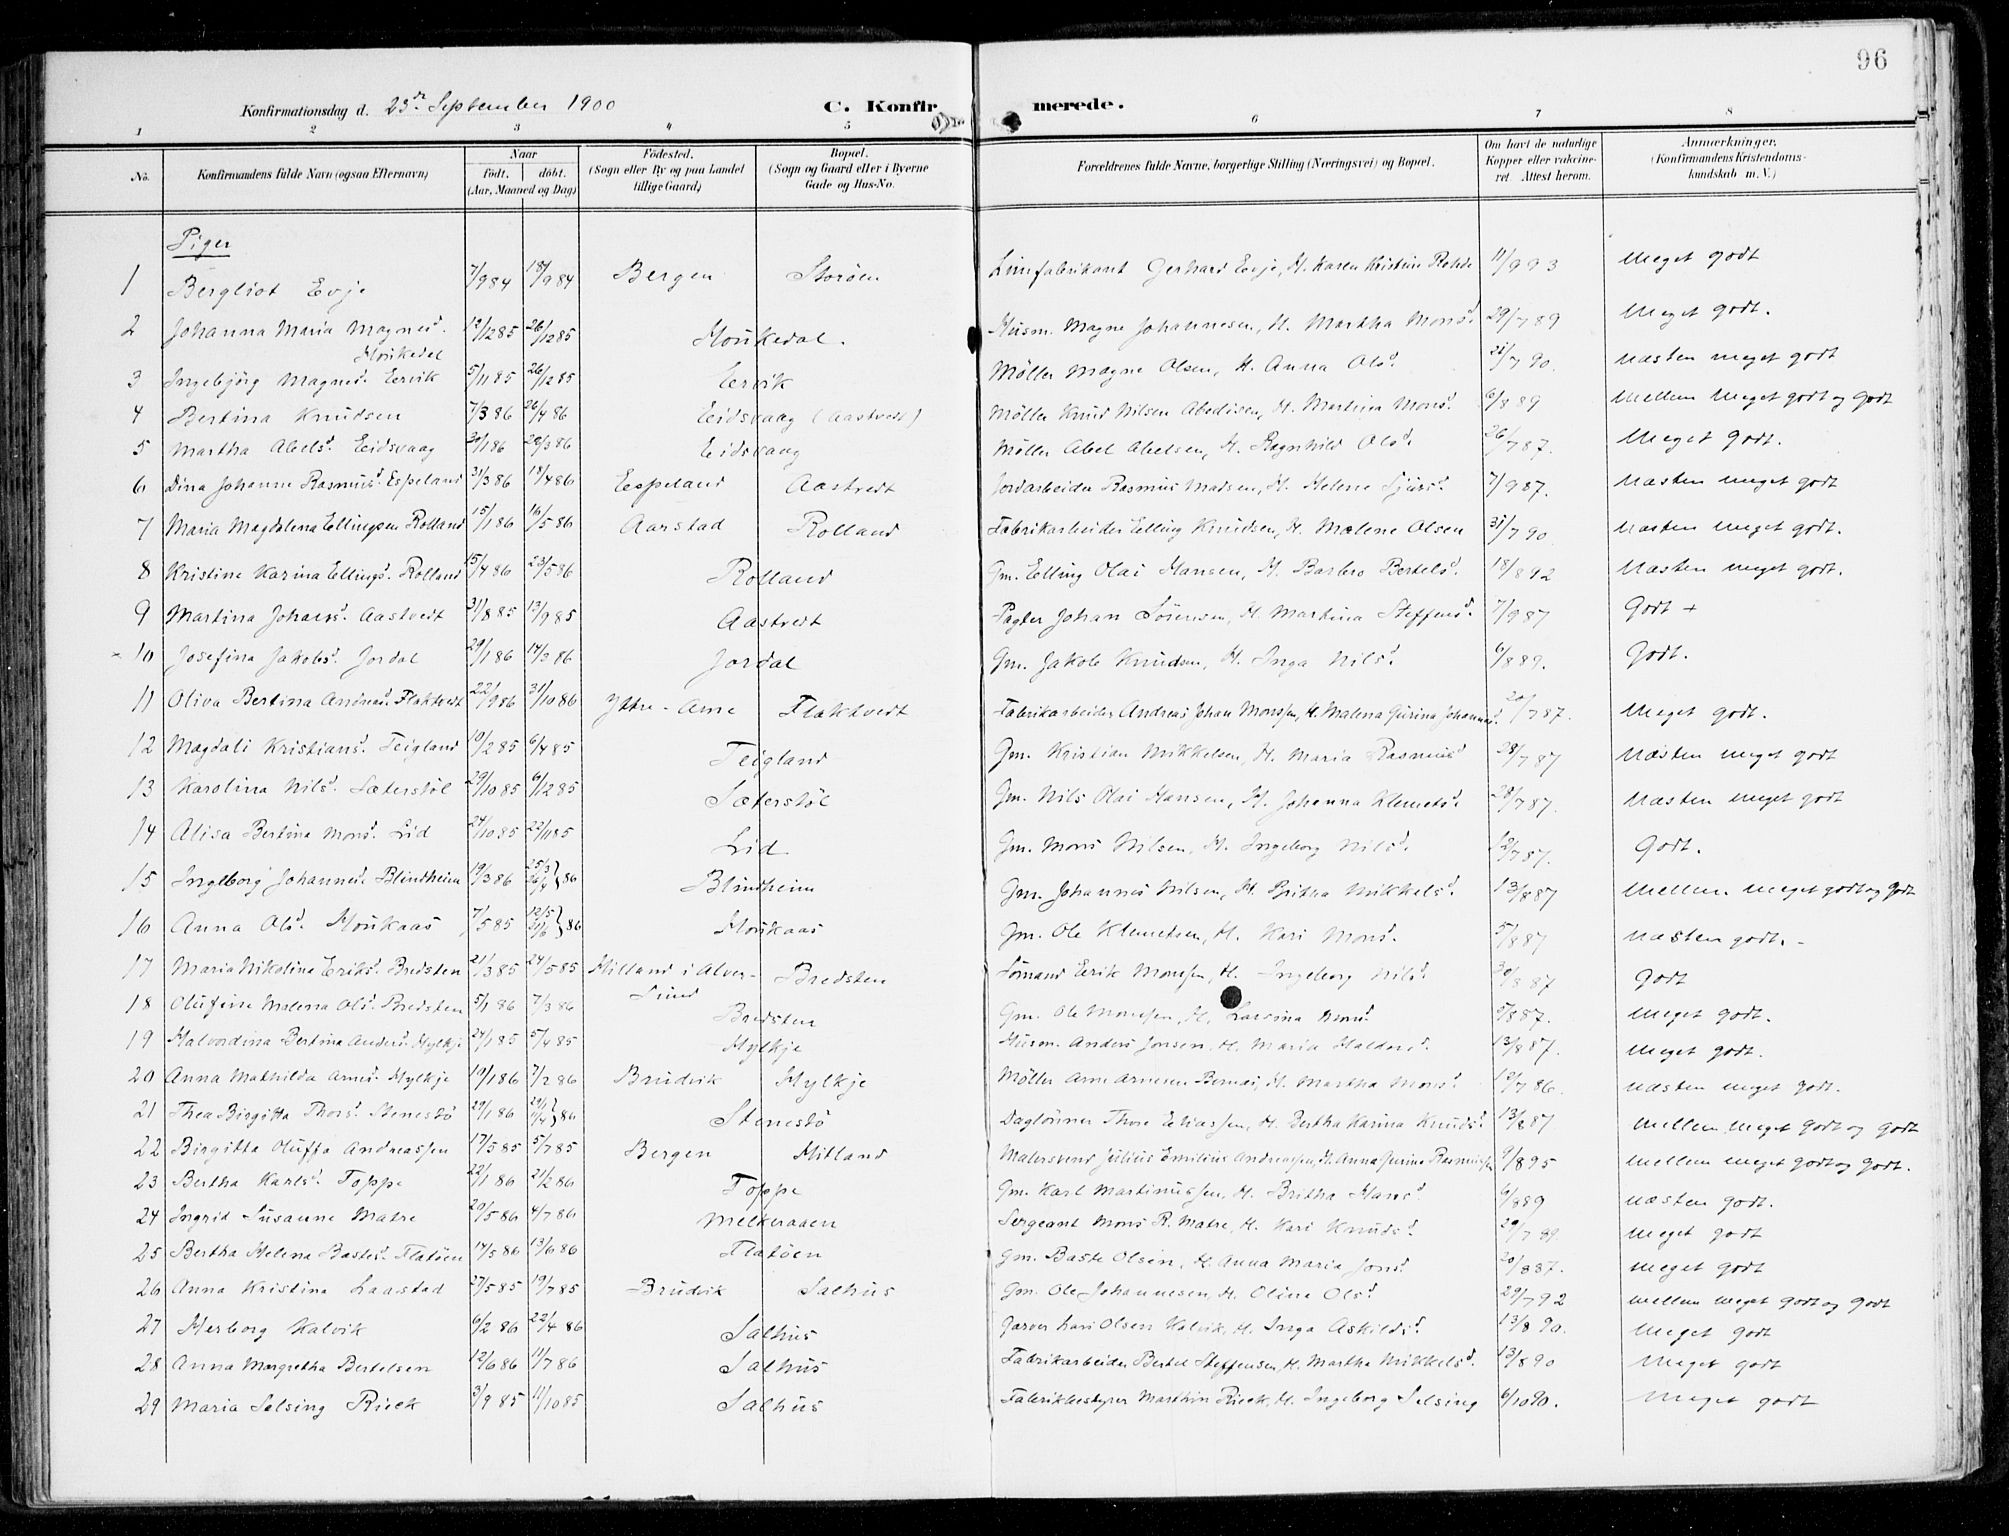 96
Konfirmationsdag d. 23de September 1900 C. Konfirmerede.
1 2 3 4 5 6 7 8
No. Konfirmandens fulde Navn (ogsaa Efternavn) Naar født. døbt. (Aar, Maaned og Dag) Fødested. (Sogn eller By og paa Landet tillige Gaard) Bopæl. (Sogn og Gaard eller i Byerne Gade og Hus-No. Forældrenes fulde Navne, borgerlige Stilling (Næringsvei) og Bopæl. Om havt de naturlige Kopper eller vakcineret. Attest herom. Anmærkninger. (Konfirmandens Kristendomskundskab m. V.)
Piger
1 Bergliot Evje 7/9 84 18/9 84 Bergen Storøen Limfabrikant Gerhard Evje, H. Karen Kristine Rohde 11/9 93 Meget godt
2 Johanna Maria Magnesd. Houkedal 12/12 85 26/12 85 Houkedal. Husm. Magne Johannesen, H. Martha Monsd. 29/7 89 Meget godt.
3 Ingebjörg Magnesd. Eervik 5/11 85 26/12 85 Eervik Møller Magne Olsen, H. Anna Olsd. 21/7 90. Næsten meget godt
4 Bertina Knudsen 7/3 86 26/4 86 Eidsvaag (Aastvedt) Møller Knud Nilsen, H. Martina Monsd. 6/8 89 Mellem Meget godt og godt
5 Martha Abelsd. Eidsvaag 30/1 86 28/3 86 Eidsvaag Møller Abel Abelsen, H. Ragnhild Olsd. 26/7 87. Meget godt.
6 Dina Johanne Rasmusd. Espeland 31/3 86 18/4 86 Espeland Aastvedt Jordarbeider Rasmus Madsen, H. Helene Sjursd. 7/9 87. Næsten meget godt
7 Maria Magdalena Ellingsen Rolland 15/1 86 16/5 86 Aarstad Rolland Fabrikarbeider Elling Knudsen, H. Malene Olsen 31/7 90 Næsten meget godt.
8 Kristine Karina Ellingsd. Rolland 15/4 86 23/5 86 Rolland Gm. Elling Olai Hansen, H. Barbro Bertelsd. 18/8 92 Næsten meget godt.
9 Martina Johansd. Aastvedt 31/8 85 13/9 85 Aastvedt Pagter Johan Sörensen, H. Martina Steffensd. 7/9 87 Godt +
10 Josefina Jakobsd. Jordal 29/1 86 14/3 86 Jordal Gm. Jakob Knudsen, H. Inga Nilsd. 6/8 89. Godt.
11 Oliva Bertina Andreasd. Flaktvedt 22/9 86 31/10 86 Ytre-Arne Flaktvedt Fabrikarbeider Andreas Johan Monssen, H. Malena Gurina Johannesd. 20/7 87. Meget godt.
12 Magdali Kristiansd. Teigland 10/2 85 6/4 85 Teigland Gm. Kristian Mikkelsen, H. Maria Rasmusd. 28/7 87 Næsten meget godt
13 Karolina Nilsd. Sæterstöl 29/10 85 6/12 85 Sæterstöl Gm. Nils Olai Hansen, H. Johanna Klemetsd. 28/7 87. Næsten meget godt
14 Alisa Bertina Monsd. Lid 24/10 85 22/11 85 Lid Gm. Mons Nilsen, H. Ingeborg Nilsd. 12/7 87. Godt.
15 Ingeborg Johannesd. Blindheim 19/3 86 25/3 26/4 } 86 Blindheim Gm. Johannes Nilsen, H. Britha Mikkelsd. 13/8 87 Mellem meget godt og godt
16 Anna Olsd. Houkaas 7/5 85 12/5 21/6 } 86 Houkaas Gm. Ole Klemetsen, H. Kari Monsd. 5/8 87 Næsten godt.
17 Maria Nikolina Eriksd. Bredsten 21/3 85 24/5 85 Hilland i Alversund Bredsten Sömand Erik Monssen, H. Ingeborg Nilsd. 30/8 87 Godt
18 Olufine Malena Olsd. Bredsten 5/1 86 7/3 86 Bredsten Gm. Ole Monssen, H. Larsina Monsd. 5/8 87. Meget godt.
19 Halvordina Bertina Andersd. Hylkje 24/1 85 5/4 85 Hylkje Husm. Anders Jonsen, H. Maria Haldorsd. 13/8 87. Meget godt.
20 Anna Mathilda Arnesd. Hylkje 19/1 86 7/2 86 Bruvik Hylkje Møller Arne Arnesen, H. Martha Monsd. 12/7 86. Næsten meget godt.
21 Thea Birgitta Thorsd. Stenestö 29/1 86 29/1 11/4 } 86 Stenestö Daglönner Thore Eliassen, H. Bertha Karina Knudsd. 13/8 87 Mellem meget godt og godt
22 Birgitta Oluffa Andreassen 17/5 85 5/7 85 Bergen Hilland Malersvend Julius Emilius Andreassen, H. Anna Gurina Rasmussen 9/8 95 Mellem meget godt og godt.
23 Bertha Karlsd. Toppe 22/1 86 21/2 86 Toppe Gm. Karl Martinussen, H. Britha Hansd. 6/8 89 Næsten godt.
24 Ingrid Susanne Matre 20/5 86 4/7 86 Melkeraaen Sergeant Mons R. Matre, H. Kari Knudsd. 29/7 89. Meget godt
25 Bertha Helena Bastesd. Flatöen 14/5 86 13/6 86 Flatöen Gm. Baste Olsen, H. Anna Maria Jonsd. 20/8 87. Meget godt
26 Anna Kristina Laastad 27/5 85 19/7 85 Bruvik Salhus Gm. Ole Johannesen, H. Oline Olsd. 29/7 92 Mellem meget godt og godt
27 Herborg Kalvik 6/2 86 22/4 86 Salhus Garver Lars Olsen Kalvik, H. Inga Askildsd. 13/8 90. Meget godt
28 Anna Margretha Bertelsen 12/6 86 11/7 86 Salhus Fabrikarbeider Bertel Steffensen, H. Martha Mikkelsd. 13/8 90 Meget godt
29 Maria Selsing Rieck 3/9 85 11/10 85 Salhus Fabrikbestyrer Marthin Rieck, H. Ingeborg Selsing 6/10 90. Meget godt